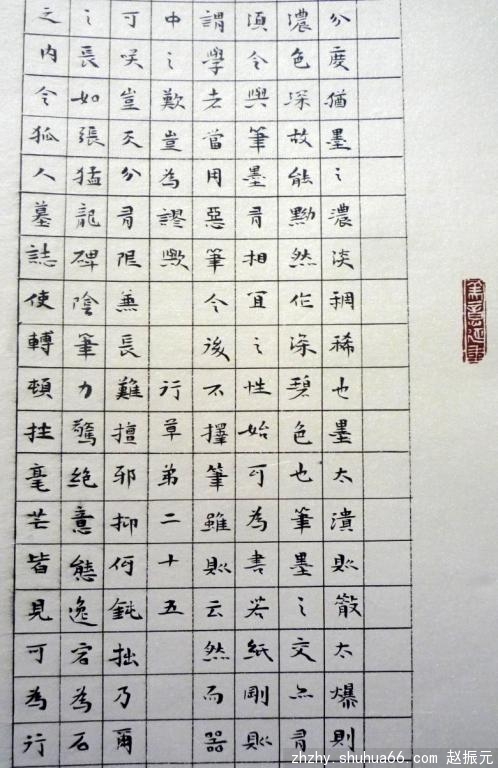 分度猶墨之濃淡稠稀也墨太潰則散太爆則
濃色深故能黝然作深碧色也筆墨之交亦有
須令與筆墨有相宜之性始可為書若紙剛則
謂學者當用惡筆令後不擇筆雖則云然而器
中之歎豈為謬歟 行草弟二十五
可咲豈天分有限兼長難擅邪抑何鈍拙乃爾
之長如張猛龍碑陰筆力驚絕意態逸宕為石
之內令狐人墓誌使轉頓挫毫芒皆見可為行
zhzhy.shuhua66.com 赵振元